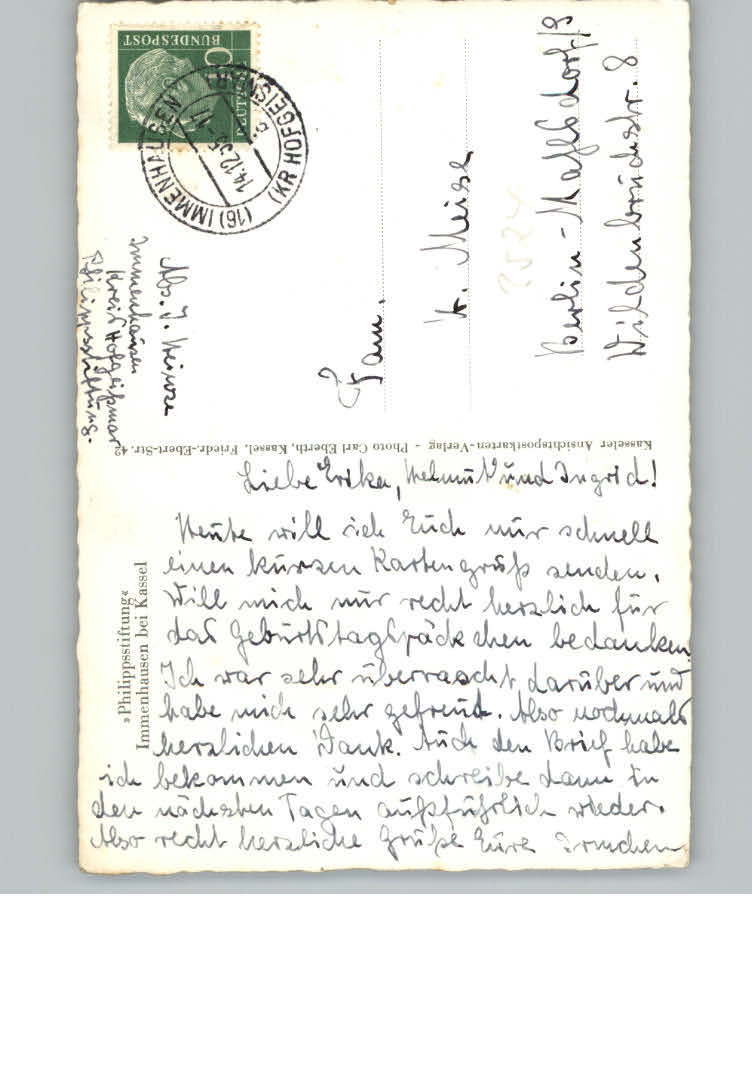 Liebe Erika, Helmut und Ingrid!
Heute will ich Euch nur schnell
einen kurzen Kartengruß senden.
Will mich nur recht herzlich für
das Geburtstagspäckchen bedanken.
Ich war sehr überrascht darüber und
habe mich sehr gefreut. Also nochmals
herzlichen Dank. Auch den Brief habe
ich bekommen und schreibe dann in
den nächsten Tagen außführlich wieder.
Also recht herzliche Grüße Eure Irmchen
»Philippsstiftung«
Immenhausen bei Kassel
Kasseler Ansichtspostkarten-Verlag - Photo Carl Eberth, Kassel, Friedr.-Ebert-Str. 42
Abs. I.
Immenhausen
Kreis Hofgeißmar
Philippsstiftung.
Fam.
K. Meise
Berlin-Mahlsdorf/
Wildenbruchstr. 8
DEUTSCHE
BUNDESPOST
(16) IMMENHAUSEN
(KR HOFGEISMAR)
14.12.55